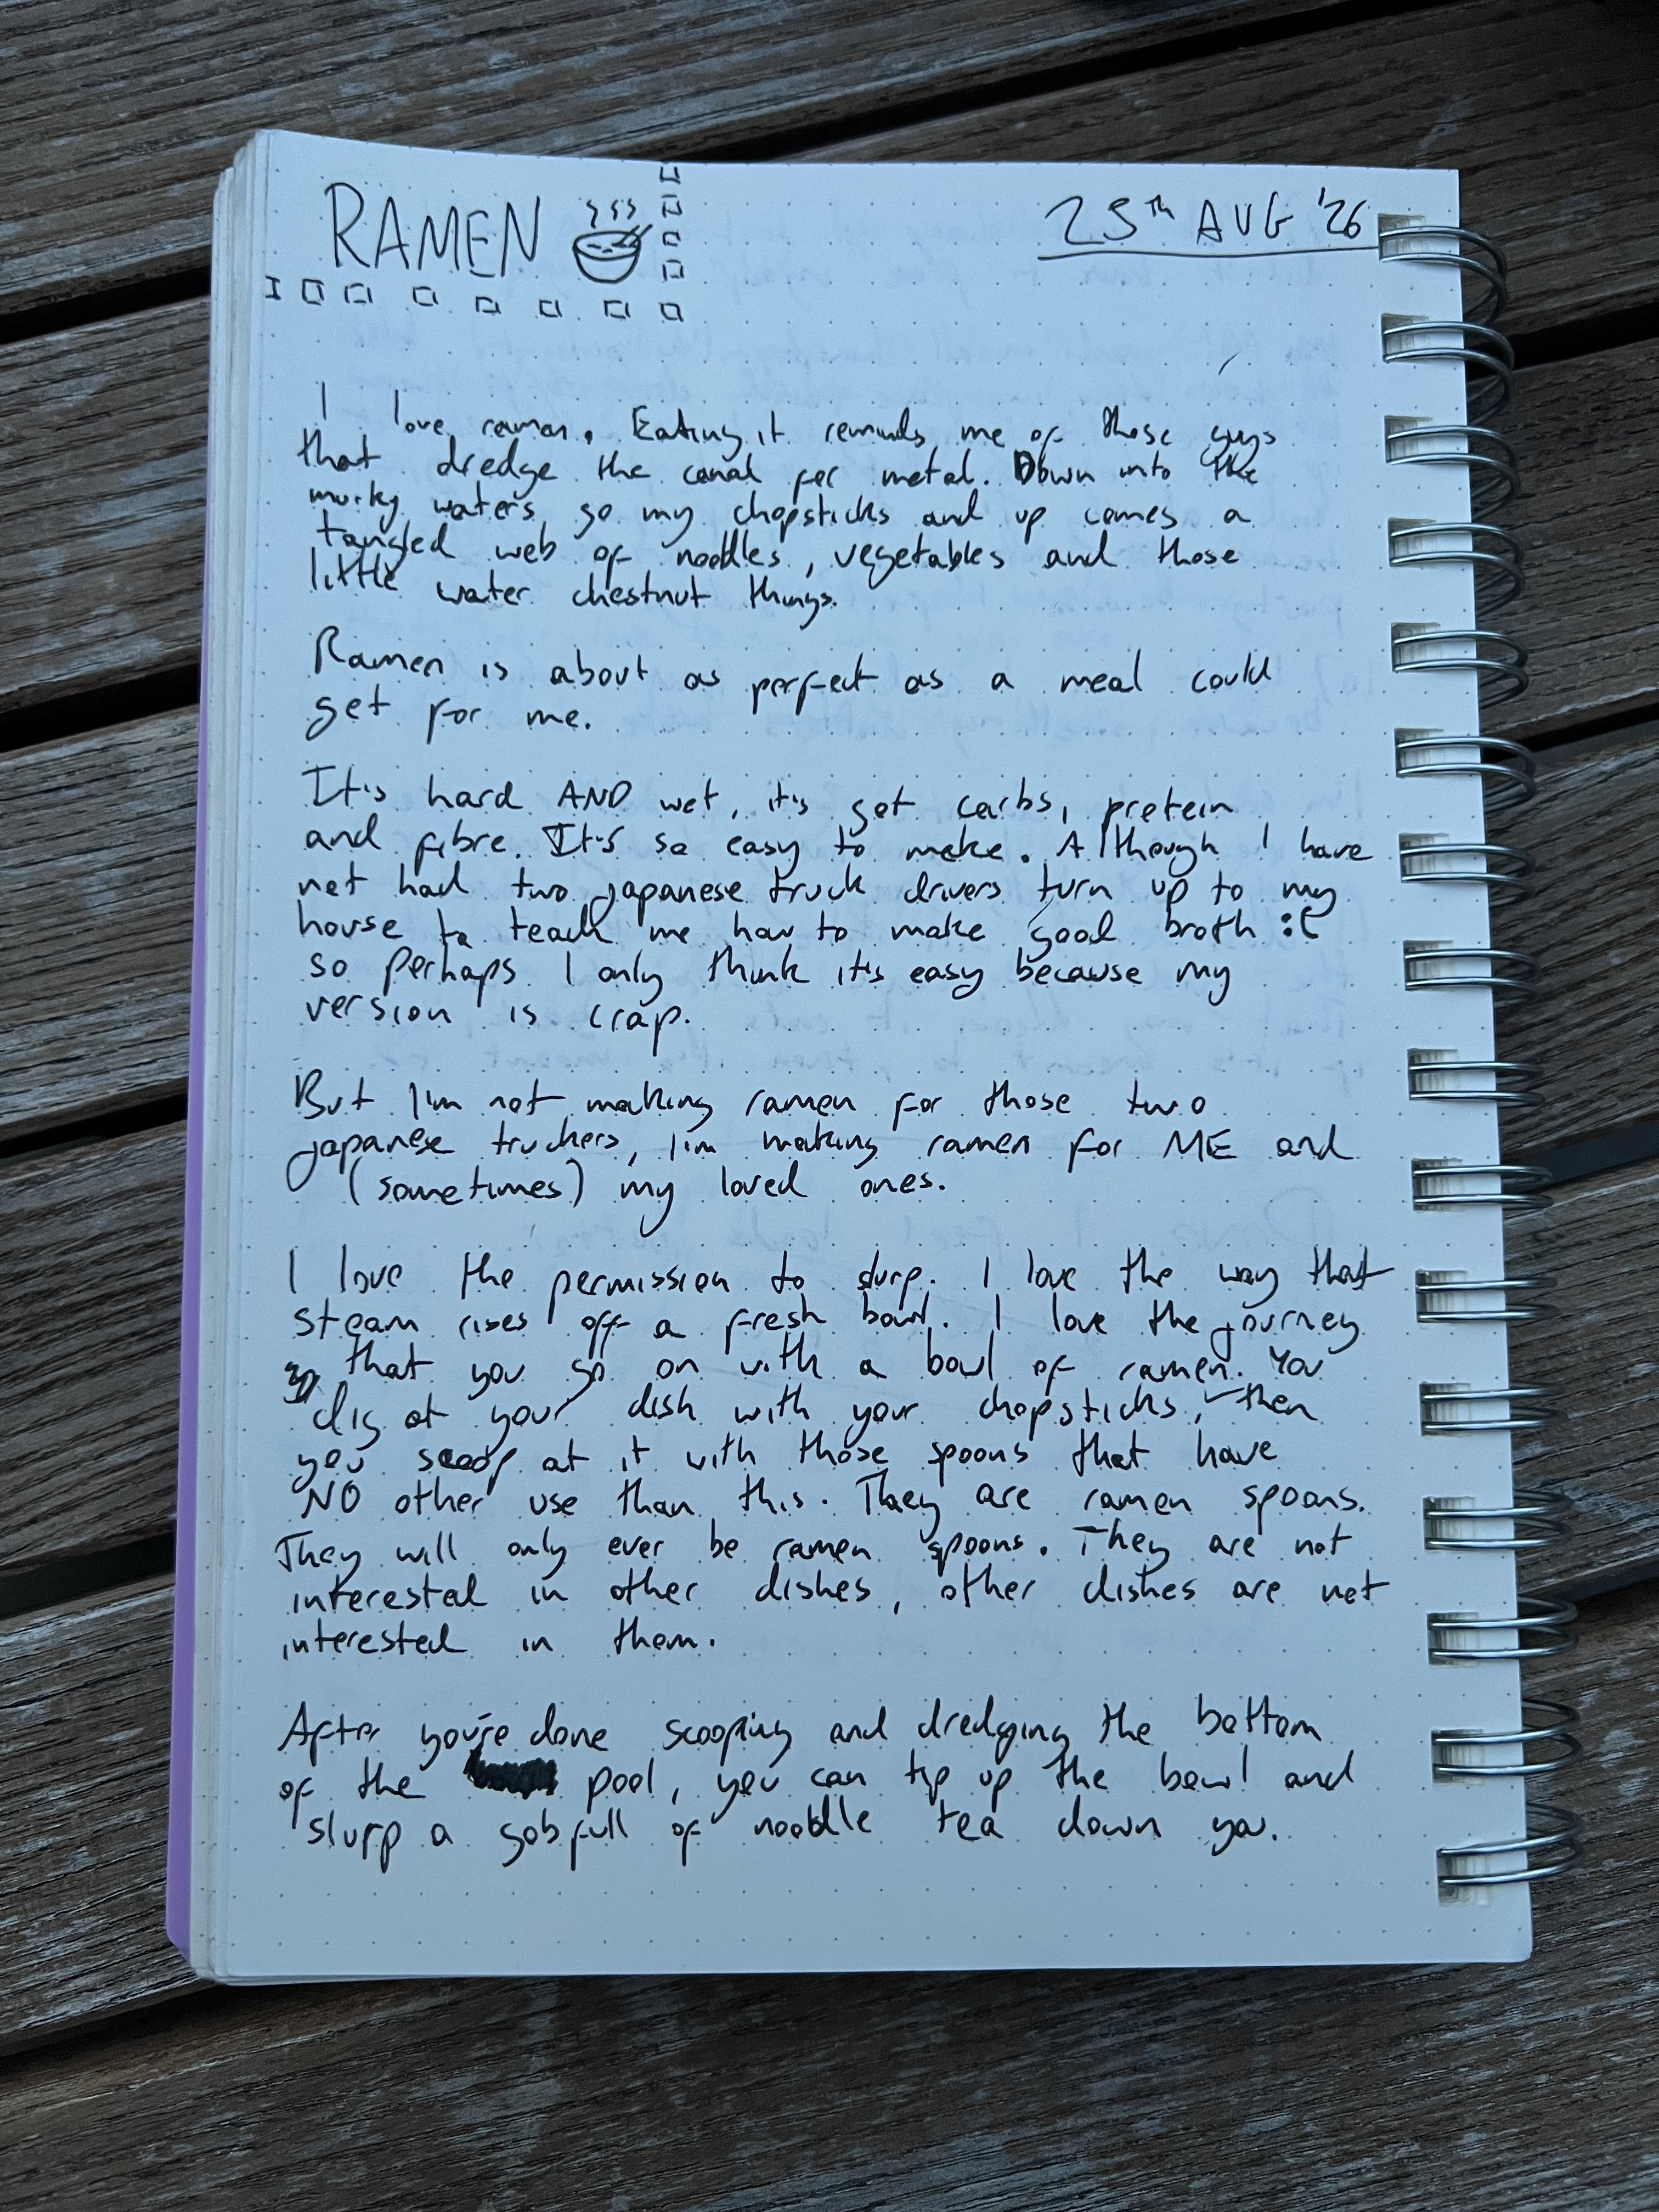 RAMEN
25TH AUG '26
I love ramen. Eating it reminds me of those guys
that dredge the canal for metal. Down into the
murky waters go my chopsticks and up comes a
tangled web of noodles, vegetables and those
little water chestnut things.
Ramen is about as perfect as a meal could
get for me.
It's hard AND wet, it's got carbs, protein
and fibre. It's so easy to make. Although I have
not had two japanese truck drivers turn up to my
house to teach me how to make good broth :(
so perhaps I only think it's easy because my
version is crap.
But I'm not making ramen for those two
japanese truckers, I'm making ramen for ME and
(sometimes) my loved ones.
I love the permission to slurp. I love the way that
steam rises off a fresh bowl. I love the journey
that you go on with a bowl of ramen. You
dig at your dish with your chopsticks, then
you scoop at it with those spoons that have
NO other use than this. They are ramen spoons.
They will only ever be ramen spoons. They are not
interested in other dishes, other dishes are not
interested in them.
After you're done scooping and dredging the bottom
of the pool, you can tip up the bowl and
slurp a gobfull of noodle tea down you.